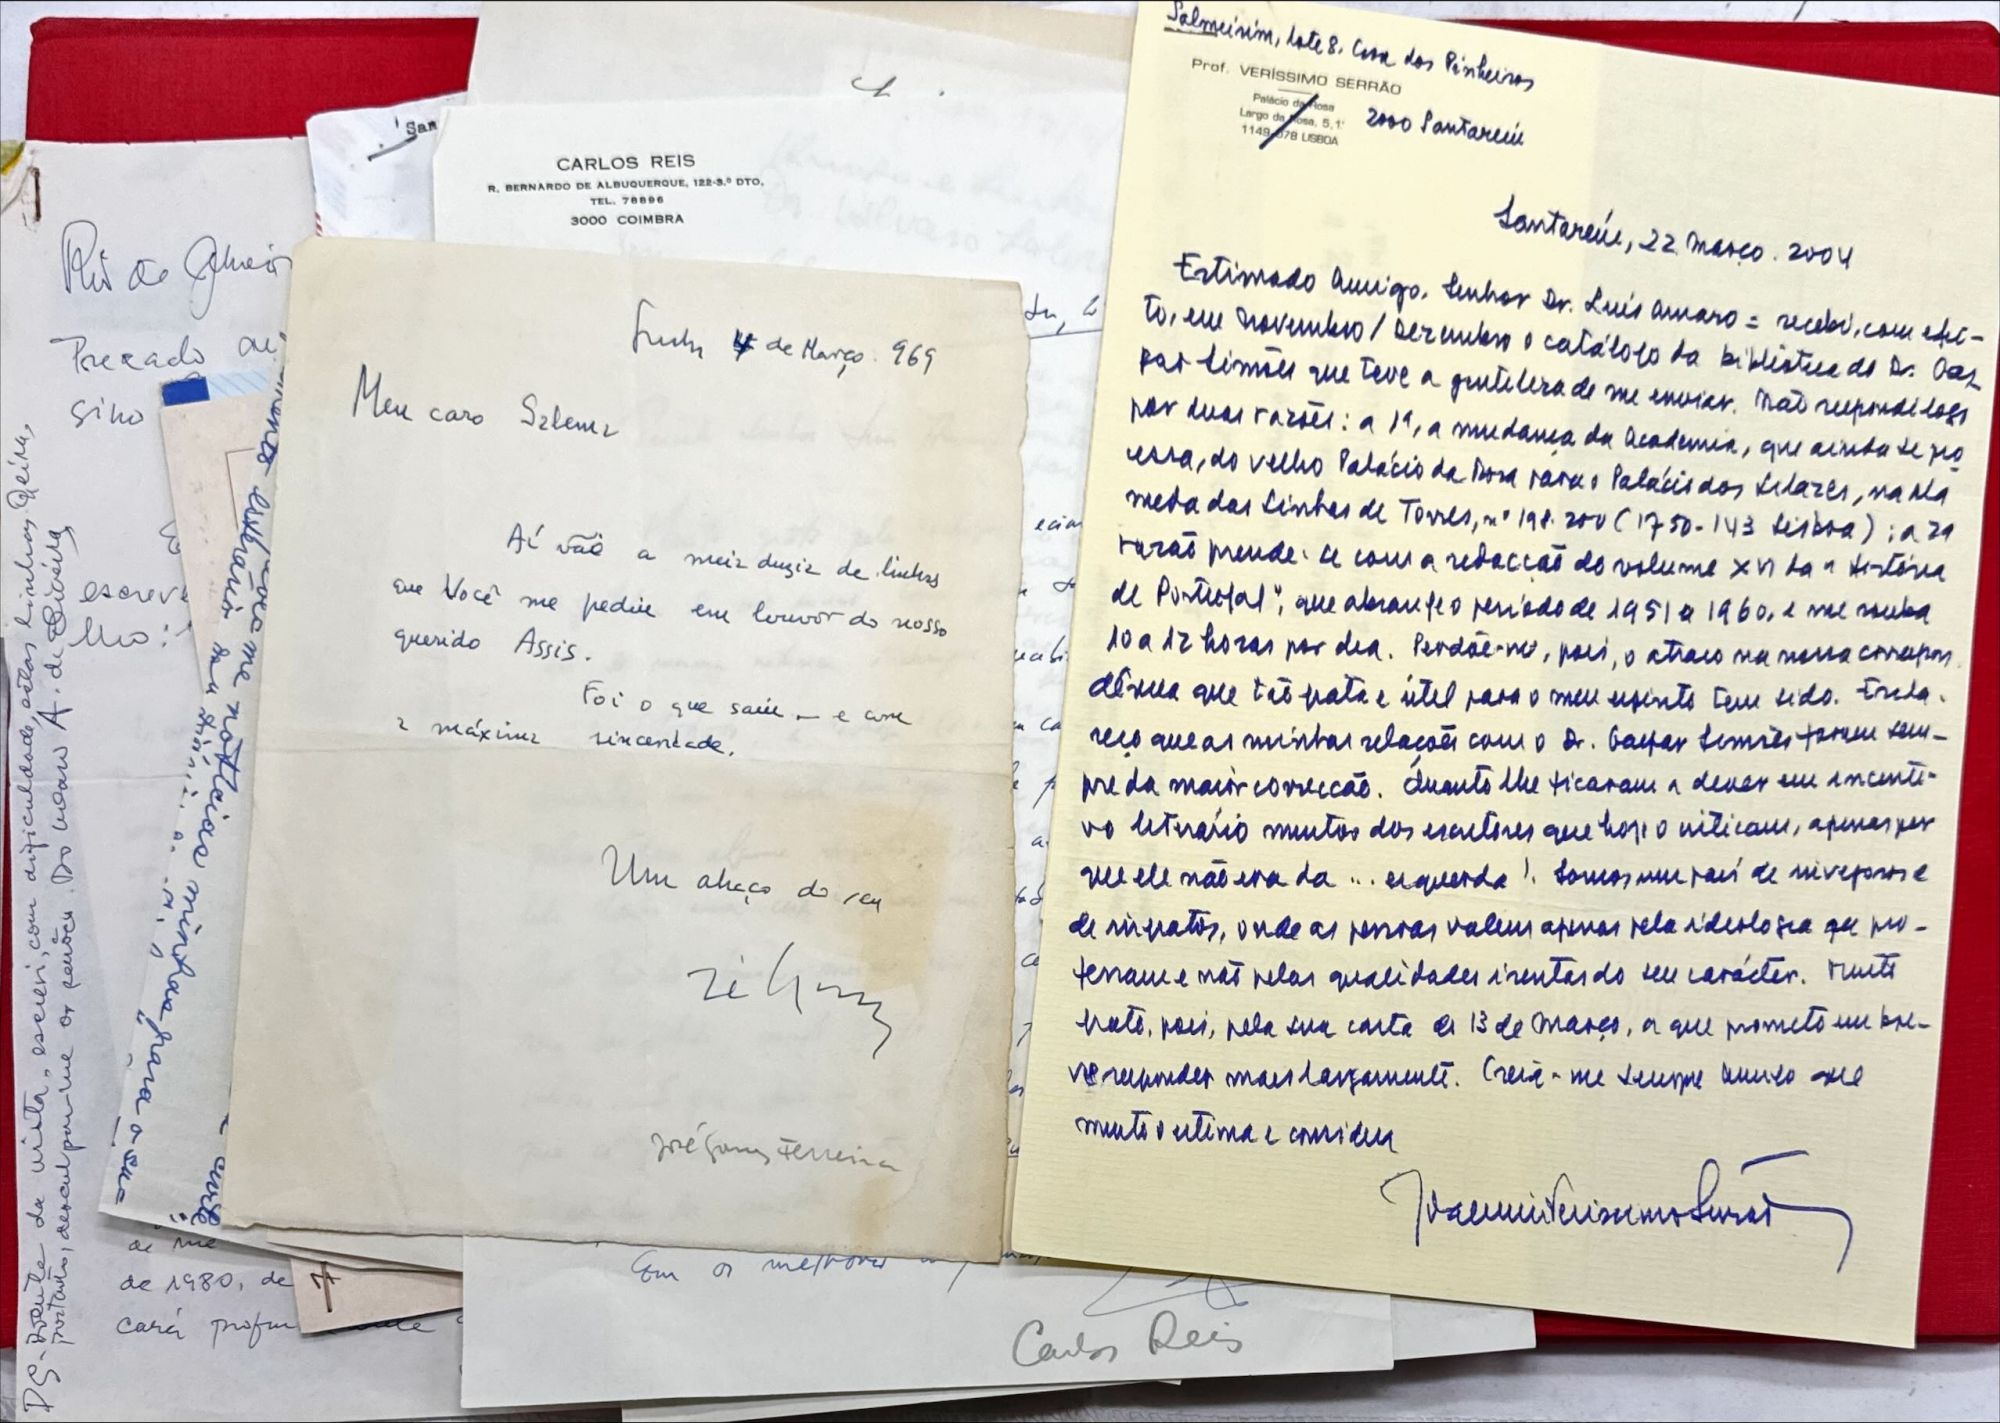 Rio de Janeiro
Prezado
escrev
de me
de 1980, de
cará profun
PS - Doente da vista, escrevi, com dificuldade, estas linhas. Queira,
portanto, desculpar-me os senões. Do velho A. de Oliveira
CARLOS REIS
R. BERNARDO DE ALBUQUERQUE, 122-3.º DTO.
TEL. 78896
3000 COIMBRA
Com os melhores
Carlos Reis
4 de Março 969
Meu caro Salema
Aí vão a meia duzia de linhas
que Você me pediu em louvor do nosso
querido Assis.
Foi o que saiu — e com
a máxima sinceridade.
Um abraço do seu
Zé Gomes
José Gomes Ferreira
Salmeirim, lote 8. Casa dos Pinheiros
Prof. VERÍSSIMO SERRÃO
Palácio da Rosa
Largo da Rosa, 5, 1.º
1149-078 LISBOA
2000 Santarém
Santarém, 22 Março. 2004
Estimado Amigo, Senhor Dr. Luís Amaro = recebi, com efei-
to, em Novembro/Dezembro o catálogo da biblioteca do Dr. Gas
par Simões que teve a gentileza de me enviar. Não respondi logo
por duas razões: a 1ª, a mudança da Academia, que ainda se pro
cessa, do velho Palácio da Rosa para o Palácio dos Lilazes, na Ala
meda das Linhas de Torres, nº 198-200 (1750-143 Lisboa); a 2ª
razão prende-se com a redacção do volume XVI da "História
de Portugal", que abrange o período de 1951 a 1960, e me rouba
10 a 12 horas por dia. Perdôe-me, pois, o atraso na nossa correspon
dência que tão grata e útil para o meu espírito tem sido. Escla-
reço que as minhas relações com o Dr. Gaspar Simões foram sem-
pre da maior correcção. Quanto lhe ficaram a dever em incenti-
vo literário muitos dos escritores que hoje o criticam, apenas por
que ele não era da ... esquerda! Somos um país de invejosos e
de ingratos, onde as pessoas valem apenas pela ideologia que pro-
fessam e não pelas qualidades isentas do seu carácter. Muito
grato, pois, pela sua carta de 13 de Março, a que prometo em bre-
ve responder mais largamente. Creia-me sempre Amigo que
muito o estima e considera
Joaquim Veríssimo Serrão